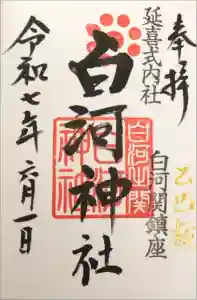 奉拝
延喜式内社
白河関鎮座
乙巳
白河神社
白河之関
令和七年六月一日